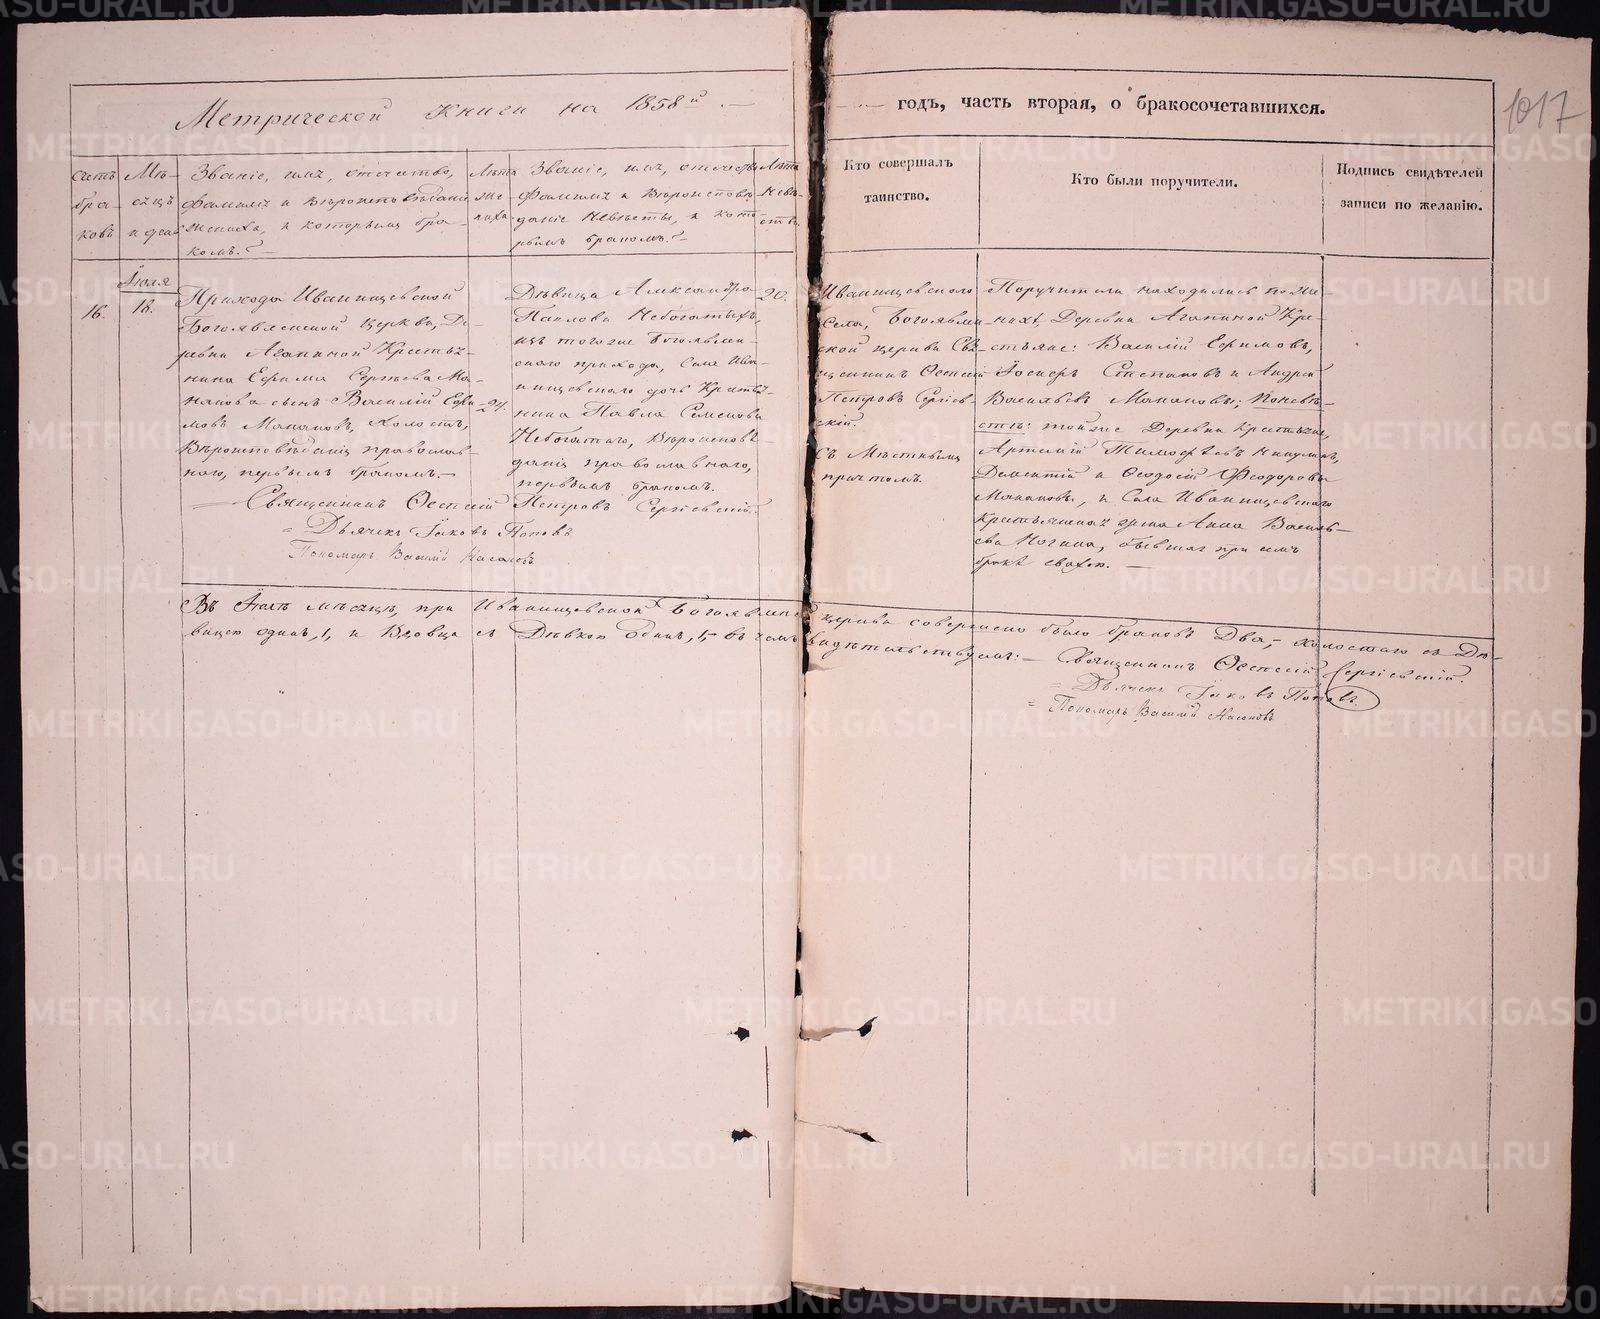 Метрической Книги на 1858й
годъ, часть вторая, о бракосочетавшихся.
1017
Счетъ браковъ
Мѣсяцъ и день
Званіе, имя, отчество,
фамилія и вѣроисповѣданіе
жениха, и которымъ бра-
комъ.
Лѣта жениха
Званіе, имя, отчество,
фамилія и вѣроисповѣ-
даніе невѣсты, и кото-
рымъ бракомъ.
Лѣта невѣсты
Кто совершалъ
таинство.
Кто были поручители.
Подпись свидѣтелей
записи по желанію.
16.
Іюля
18.
Прихода Иванищевской
Богоявленской церкви, Де-
ревни Агапиной Крестья-
нина Ефима Сергѣева Ма-
накова сынъ Василій Ефи-
мовъ Манаковъ, холостъ,
Вѣроисповѣданія православ-
наго, первымъ бракомъ.
24.
Дѣвица Александра
Павлова Небогатыхъ,
изъ тогоже Богоявлен-
скаго прихода, Села Ива-
нищевскаго дочь Крестья-
нина Павла Семенова
Небогатаго, Вѣроисповѣ-
данія православнаго,
первымъ бракомъ.
20.
Иванищевскаго
Села, Богоявлен-
ской церкви Свя-
щенникъ Евсевій
Петровъ Сергіев-
скій.
Съ Мѣстнымъ
причтомъ.
Поручители находились по же-
нихѣ, Деревни Агапиной Кре-
стьяне: Василій Ефимовъ,
Іосифъ Степановъ и Андрей
Васильевъ Манаковы; По невѣ-
стѣ: тойже Деревни Крестьяне,
Артемій Тимофеевъ Никулинъ,
Дементій и Ѳеодосій Ѳеодоровы
Манаковы, и Села Иванищевскаго
Крестьянская жена Анна Василь-
ева Ногина, бывшая при семъ
бракѣ свахою.
Священникъ Евсевій Петровъ Сергіевскій.
Дьячекъ Іаковъ Поповъ
Пономарь Василій Насоновъ
Въ Іюлѣ мѣсяцѣ, при Иванищевской Богоявленской церкви совершено было браковъ Два, холостаго съ Дѣ-
вицею одинъ, 1, и Вдовца съ Дѣвкою одинъ, 1, въ чемъ свидѣтельствуемъ:
Священникъ Евсевій Сергіевскій.
Дьячекъ Іаковъ Поповъ.
Пономарь Василій Насоновъ
METRIKI.GASO-URAL.RU